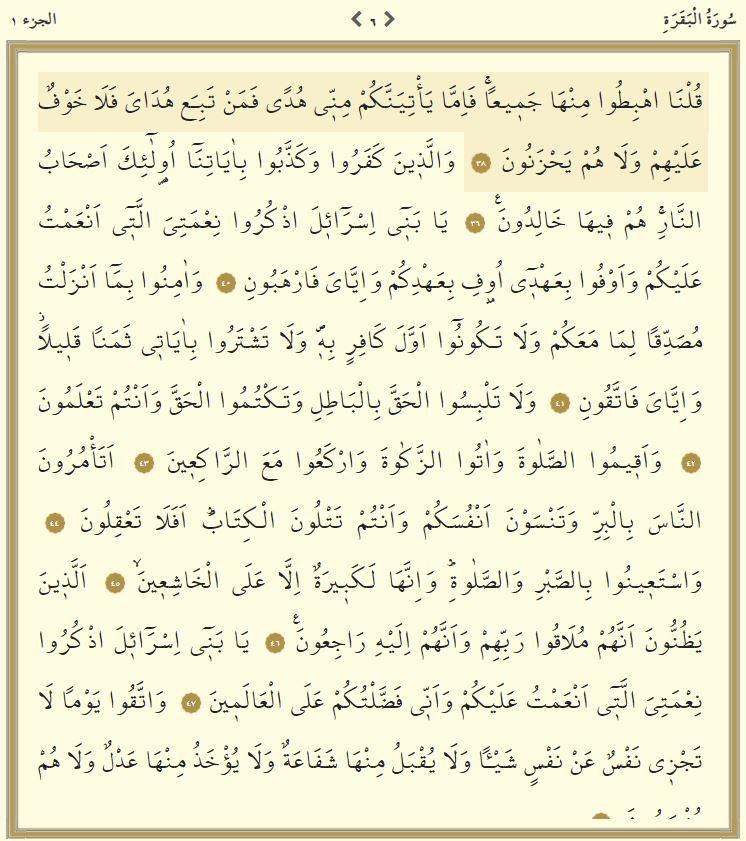 سُورَةُ الْبَقَرَةِ ٦ الجزء ١
قُلْنَا اهْبِطُوا مِنْهَا جَمٖيعاًۚ فَاِمَّا يَأْتِيَنَّكُمْ مِنّٖى هُدًى فَمَنْ تَبِعَ هُدَاىَ فَلَا خَوْفٌ
عَلَيْهِمْ وَلَا هُمْ يَحْزَنُونَ ٣٨ وَالَّذٖينَ كَفَرُوا وَكَذَّبُوا بِاٰيَاتِنَٓا اُو۬لٰٓئِكَ اَصْحَابُ
النَّارِۚ هُمْ فٖيهَا خَالِدُونَࣖ ٣٩ يَا بَنٖٓى اِسْرَٓائٖلَ اذْكُرُوا نِعْمَتِىَ الَّتٖٓى اَنْعَمْتُ
عَلَيْكُمْ وَاَوْفُوا بِعَهْدٖٓى اُو۫فِ بِعَهْدِكُمْ وَاِيَّاىَ فَارْهَبُونِ ٤٠ وَاٰمِنُوا بِمَٓا اَنْزَلْتُ
مُصَدِّقًا لِمَا مَعَكُمْ وَلَا تَكُونُٓوا اَوَّلَ كَافِرٍ بِهٖؕ وَلَا تَشْتَرُوا بِاٰيَاتٖى ثَمَنًا قَلٖيلاًؗ
وَاِيَّاىَ فَاتَّقُونِ ٤١ وَلَا تَلْبِسُوا الْحَقَّ بِالْبَاطِلِ وَتَكْتُمُوا الْحَقَّ وَاَنْتُمْ تَعْلَمُونَ
٤٢ وَاَقٖيمُوا الصَّلٰوةَ وَاٰتُوا الزَّكٰوةَ وَارْكَعُوا مَعَ الرَّاكِعٖينَ ٤٣ اَتَأْمُرُونَ
النَّاسَ بِالْبِرِّ وَتَنْسَوْنَ اَنْفُسَكُمْ وَاَنْتُمْ تَتْلُونَ الْكِتَابَؕ اَفَلَا تَعْقِلُونَ ٤٤
وَاسْتَعٖينُوا بِالصَّبْرِ وَالصَّلٰوةِؕ وَاِنَّهَا لَكَبٖيرَةٌ اِلَّا عَلَى الْخَاشِعٖينَۙ ٤٥ اَلَّذٖينَ
يَظُنُّونَ اَنَّهُمْ مُلَاقُوا رَبِّهِمْ وَاَنَّهُمْ اِلَيْهِ رَاجِعُونَࣖ ٤٦ يَا بَنٖٓى اِسْرَٓائٖلَ اذْكُرُوا
نِعْمَتِىَ الَّتٖٓى اَنْعَمْتُ عَلَيْكُمْ وَاَنّٖى فَضَّلْتُكُمْ عَلَى الْعَالَمٖينَ ٤٧ وَاتَّقُوا يَوْمًا لَا
تَجْزٖى نَفْسٌ عَنْ نَفْسٍ شَيْـًٔا وَلَا يُقْبَلُ مِنْهَا شَفَاعَةٌ وَلَا يُؤْخَذُ مِنْهَا عَدْلٌ وَلَا هُمْ